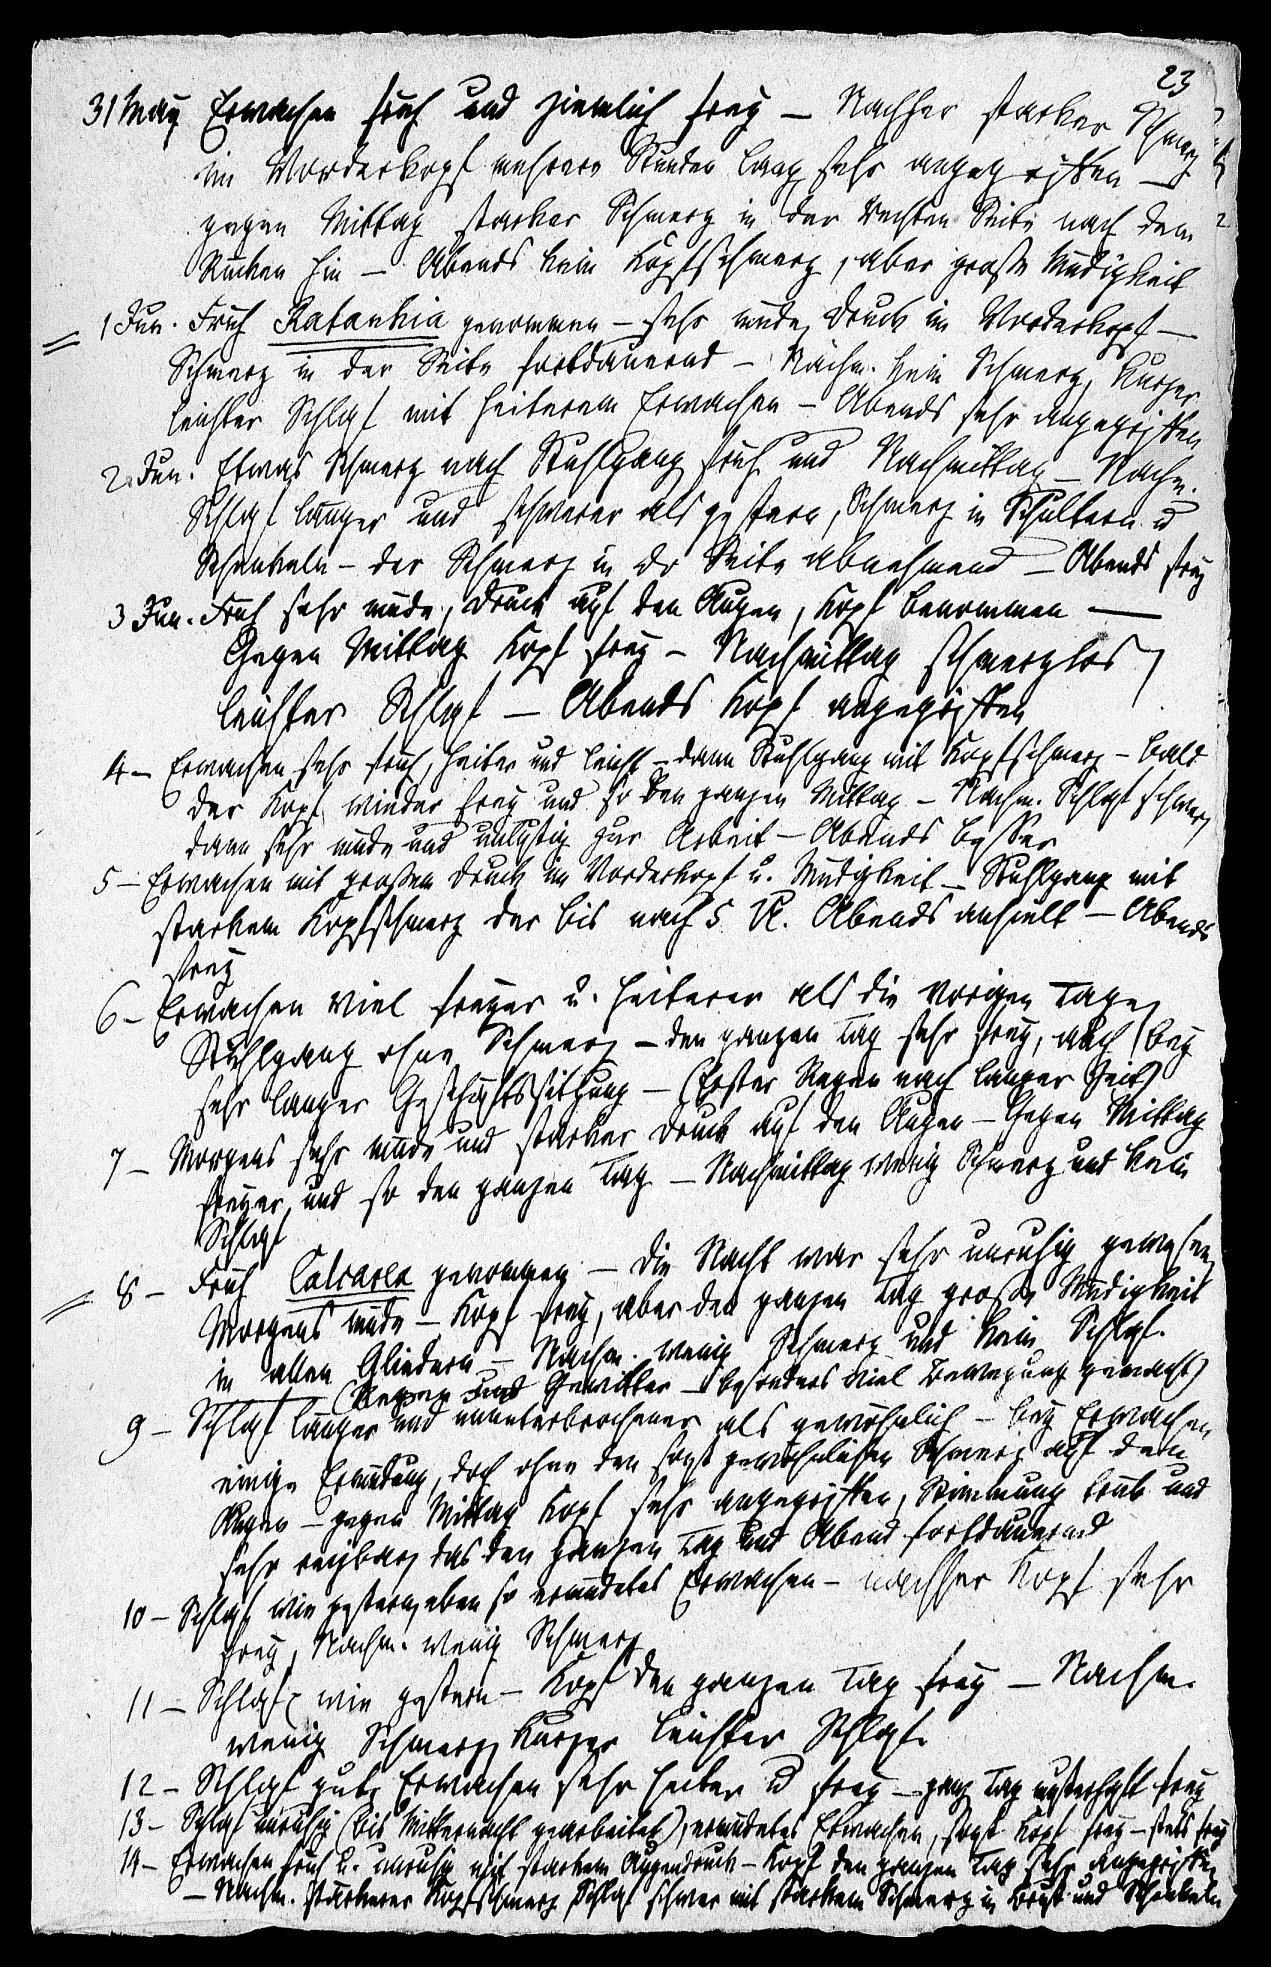 23
31 May Erwachen früh und ziemlich frey — Nachher starker Schmerz
im Vorderkopf mehrere Stunden lang sehr angegriffen —
gegen Mittag starker Schmerz in der rechten Seite nach dem
Rücken hin — Abends kein Kopfschmerz, aber große Müdigkeit
1 Jun. Früh Ratanhia genommen — sehr müde, Druck im Vorderkopf —
Schmerz in der Seite fortdauernd — Nachm. kein Schmerz, kurzer
leichter Schlaf mit heiterem Erwachen — Abends sehr angegriffen
2 Jun. Etwas Schmerz nach Stuhlgang früh und Nachmittag — Nachm.
Schlaf länger und schwerer als gestern, Schmerz in Schultern u
Schenkeln — der Schmerz in der Seite abnehmend — Abends frey
3 Jun. Früh sehr müde, Druck auf den Augen, Kopf benommen —
Gegen Mittag Kopf frey — Nachmittag schmerzlos,
leichter Schlaf — Abends Kopf angegriffen
4 — Erwachen sehr früh, heiter und leicht — dann Stuhlgang mit Kopfschmerz — bald
der Kopf wieder frey und so den ganzen Mittag — Nachm. Schlaf schwer,
dann sehr müde und unlustig zur Arbeit — Abends besser
5 — Erwachen mit großem Druck im Vorderkopf u. Müdigkeit — Stuhlgang mit
starkem Kopfschmerz der bis nach 5 U. Abends anhielt — Abends
frey
6 — Erwachen viel freyer u. heiterer als die vorigen Tage,
Stuhlgang ohne Schmerz — den ganzen Tag sehr frey, auch bey
sehr langer Geschäftssitzung — (Erster Regen nach langer Zeit)
7 — Morgens sehr müde und starker Druck auf den Augen — Gegen Mittag
freyer, und so den ganzen Tag — Nachmittag wenig Schmerz und kein
Schlaf
8 — Früh Calcarea genommen — Die Nacht war sehr unruhig gewesen,
Morgens müde — Kopf frey, aber den ganzen Tag große Müdigkeit
in allen Gliedern — Nachm. wenig Schmerz und kein Schlaf.
(Regen und Gewitter — besonders viel Bewegung gemacht)
9 — Schlaf länger und ununterbrochener als gewöhnlich — bey Erwachen
einige Ermüdung, doch ohne den sonst gewöhnlichen Schmerz auf den
Augen — gegen Mittag Kopf sehr angegriffen, Stimmung trüb und
sehr reizbar, das den ganzen Tag und Abend fortdauernd
10 — Schlaf wie gestern, eben so ermüdetes Erwachen — nachher Kopf sehr
frey, Nachm. wenig Schmerz
11 — Schlaf wie gestern — Kopf den ganzen Tag frey — Nachm.
wenig Schmerz, kurzer leichter Schlaf.
12 — Schlaf gut, Erwachen sehr heiter u frey — ganz Tag frey
13 — Schlaf unruhig (bis Mitternacht gearbeitet), ermüdetes Erwachen, sonst Kopf frey — stets frey
14 — Erwachen früh u. unruhig mit starkem Augendruck — Kopf den ganzen Tag sehr angegriffen
— Nachm. stärkerer Kopfschmerz Schlaf schwer mit starkem Schmerz in Brust und Schenkeln